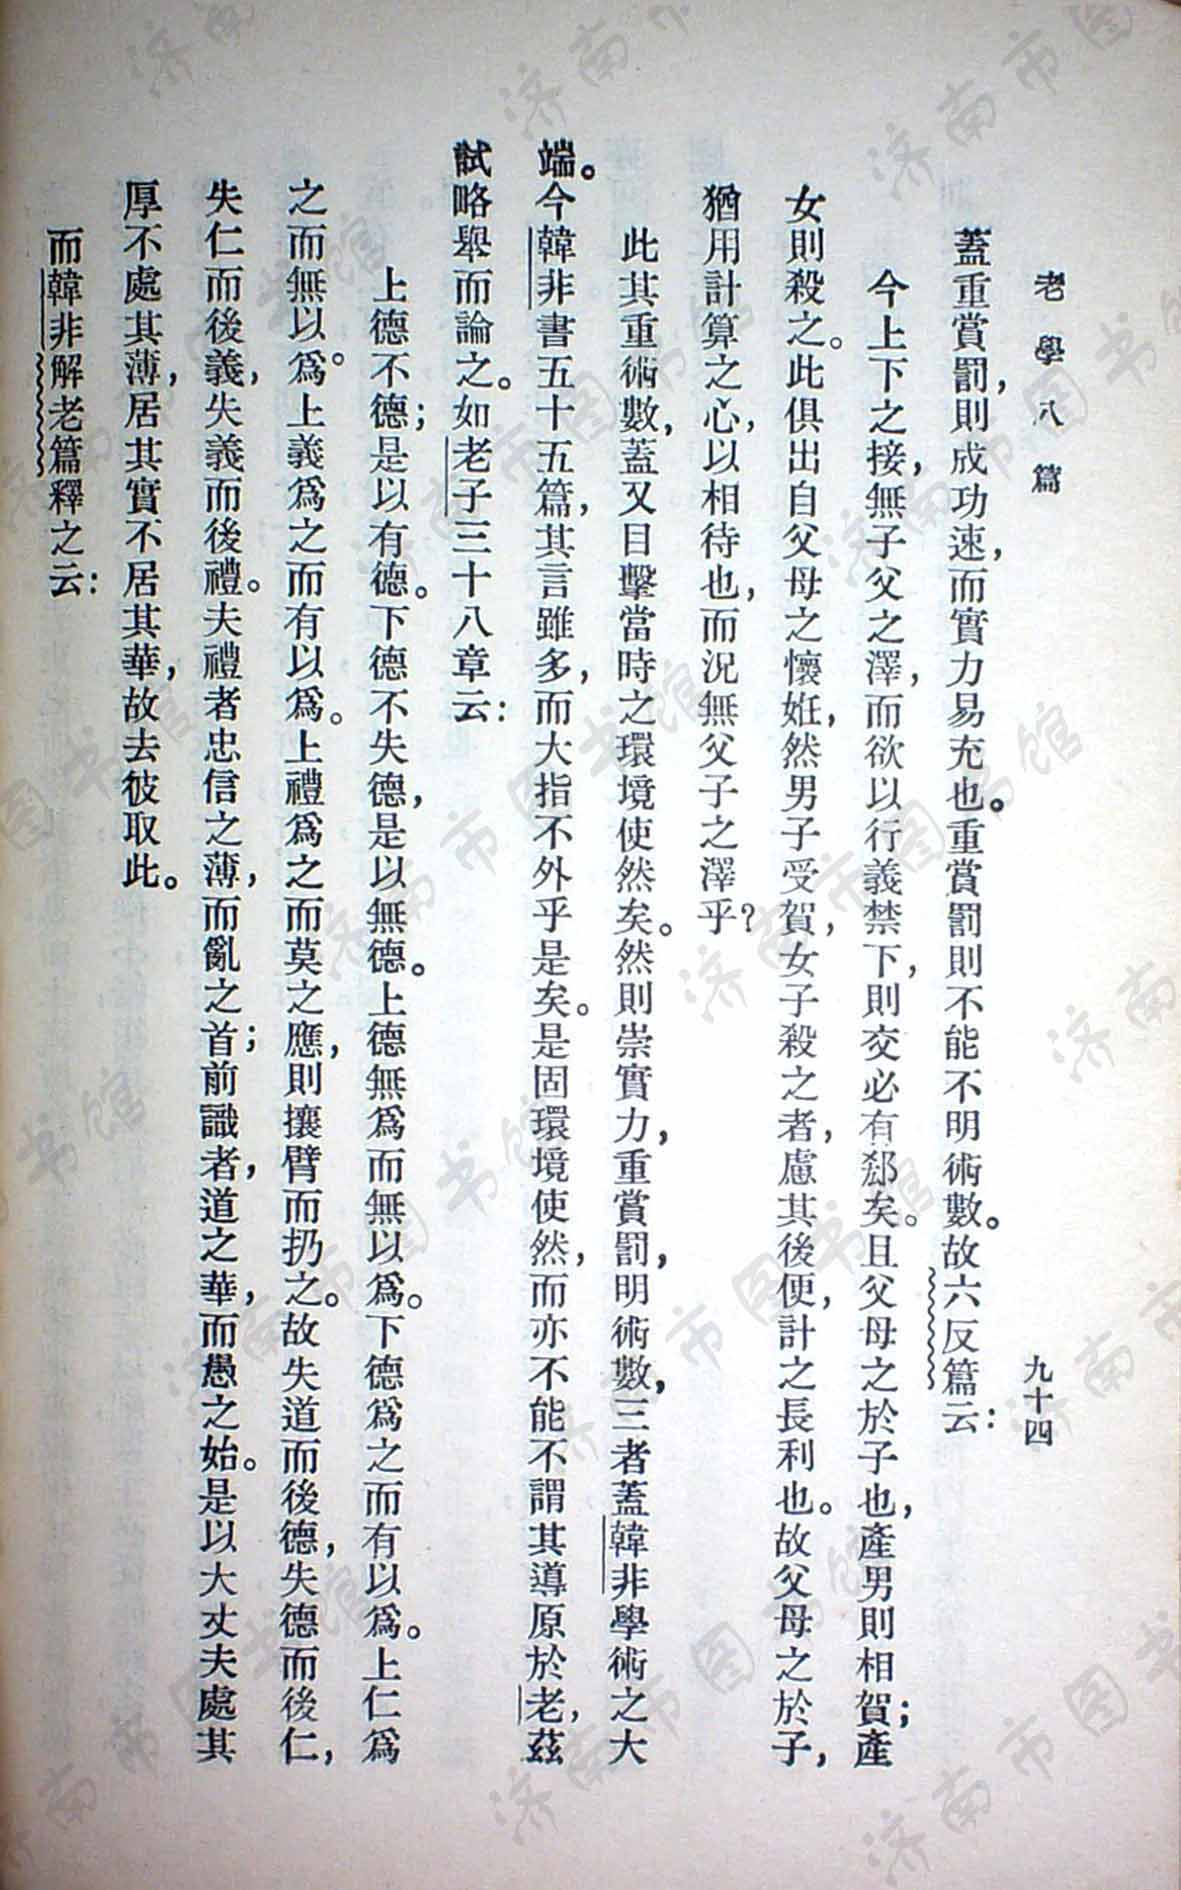 老學八篇
九十四
蓋重賞罰，則成功速，而實力易充也。重賞罰則不能不明術數。故六反篇云：
今上下之接，無子父之澤，而欲以行義禁下，則交必有郄矣。且父母之於子也，產男則相賀；產
女則殺之。此俱出自父母之懷姙，然男子受賀，女子殺之者，慮其後便，計之長利也。故父母之於子，
猶用計算之心，以相待也，而況無父子之澤乎？
此其重術數，蓋又目擊當時之環境使然矣。然則崇實力，重賞罰，明術數，三者蓋韓非學術之大
端。今韓非書五十五篇，其言雖多，而大指不外乎是矣。是固環境使然，而亦不能不謂其導原於老，茲
試略舉而論之。如老子三十八章云：
上德不德；是以有德。下德不失德，是以無德。上德無爲而無以爲。下德爲之而有以爲。上仁爲
之而無以爲。上義爲之而有以爲。上禮爲之而莫之應，則攘臂而扔之。故失道而後德，失德而後仁，
失仁而後義，失義而後禮。夫禮者忠信之薄，而亂之首；前識者，道之華，而愚之始。是以大丈夫處其
厚不處其薄，居其實不居其華，故去彼取此。
而韓非解老篇釋之云：
济南市图书馆